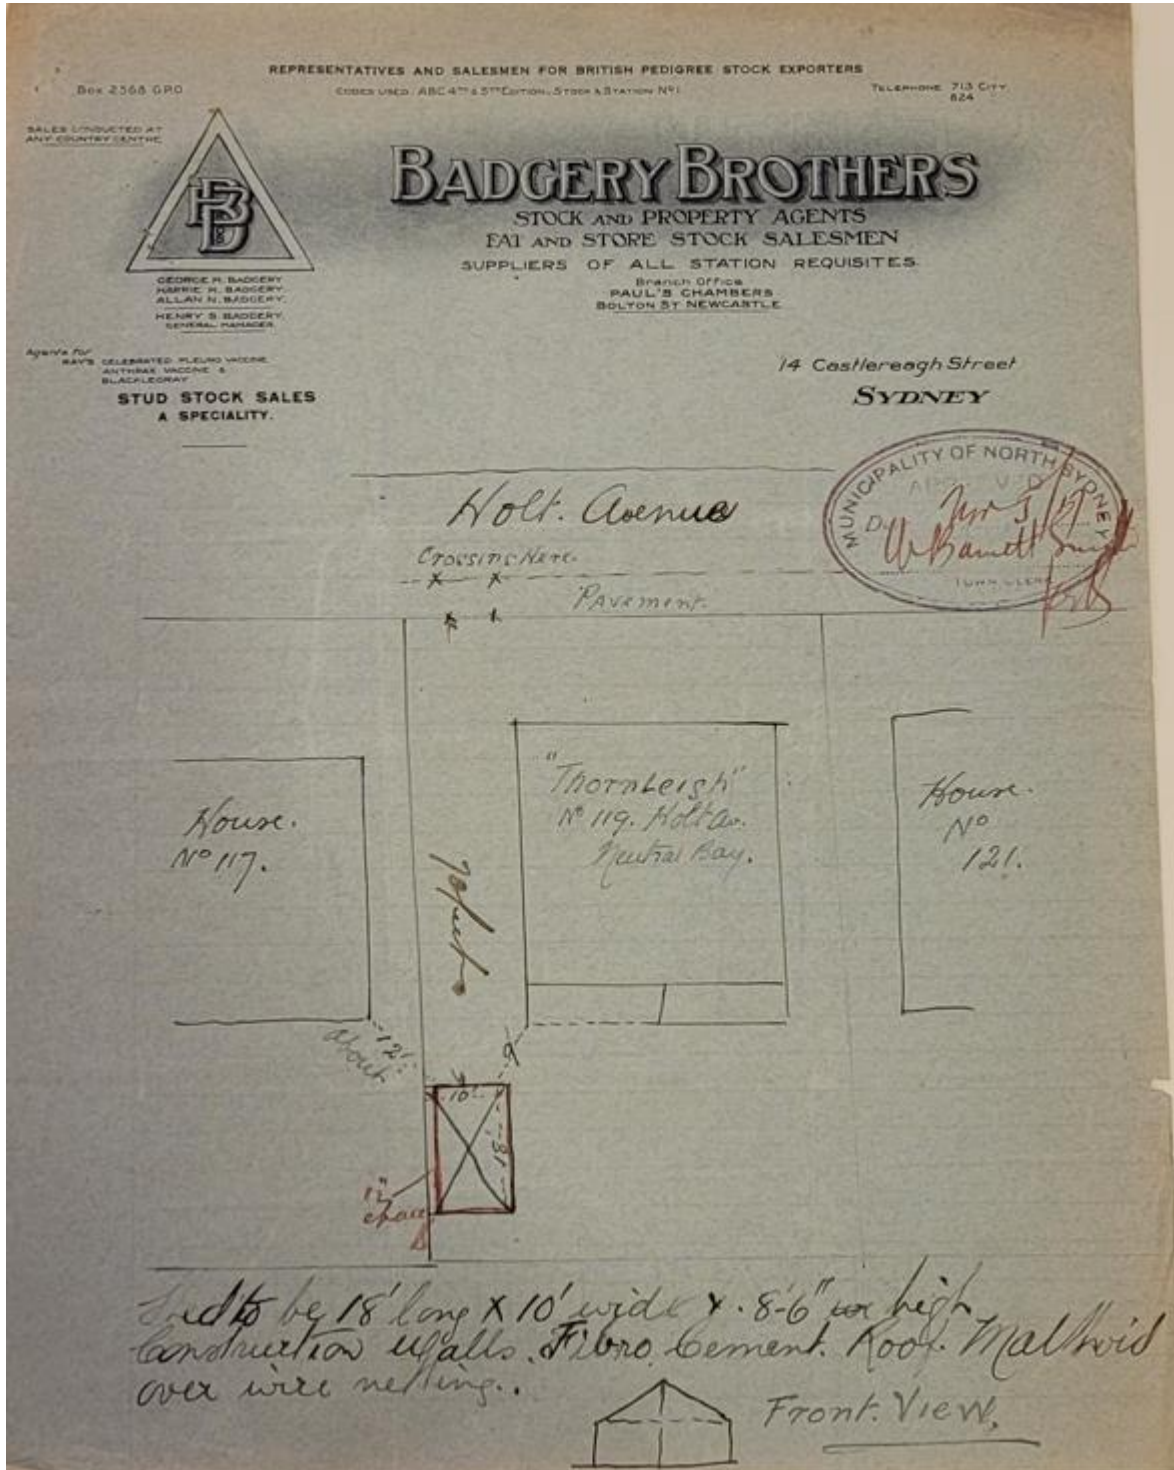 REPRESENTATIVES AND SALESMEN FOR BRITISH PEDIGREE STOCK EXPORTERS
Box 2568 G.P.O
CODES USED: ABC 4TH & 5TH EDITION. STOCK & STATION No 1
TELEPHONE 713 CITY
824
SALES CONDUCTED AT
ANY COUNTRY CENTRE
BB
BADGERY BROTHERS
STOCK AND PROPERTY AGENTS
FAT AND STORE STOCK SALESMEN
SUPPLIERS OF ALL STATION REQUISITES
Branch Office
PAUL'S CHAMBERS
BOLTON ST NEWCASTLE
GEORGE H. BADGERY
HARRIE H. BADGERY.
ALLAN N. BADGERY.
HENRY S. BADGERY.
GENERAL MANAGER.
Agents for
RAY'S CELEBRATED PLEURO VACCINE
ANTHRAX VACCINE &
BLACKLEGRAY
STUD STOCK SALES
A SPECIALITY.
14 Castlereagh Street
SYDNEY
MUNICIPALITY OF NORTH SYDNEY
TOWN CLERK
Holt. Avenue
Crossing Here.
Pavement.
House.
No 117.
"Thornleigh"
No 119. Holt Av.
Neutral Bay.
House.
No
121.
About
12'.
10'
18'
12"
Shed to be 18' long X 10' wide X. 8-6" high
Construction Walls. Fibro. Cement. Roof. Malthoid
over wire netting..
Front. View.